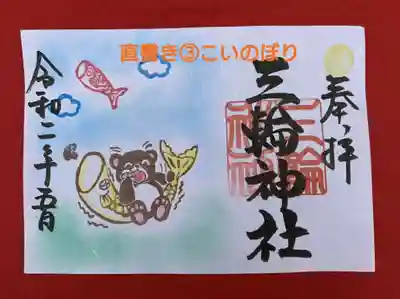 直書き③こいのぼり
奉拝
三輪神社
三輪神社
令和二年五月